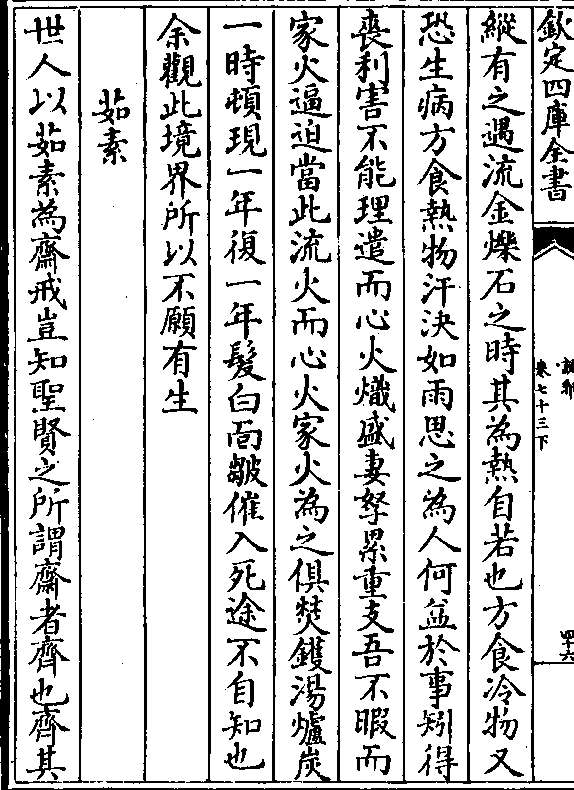 欽定四庫全書
說郛
卷七十三下
四十六
縱有之遇流金爍石之時其為熱自若也方食冷物又
恐生病方食熱物汗決如雨思之為人何益於事矧得
喪利害不能理遣而心火熾盛妻孥累重支吾不暇而
家火逼迫當此流火而心火家火為之俱焚鑊湯爐炭
一時頓現一年復一年髮白面皺催入死途不自知也
余觀此境界所以不願有生
茹素
世人以茹素為齋戒豈知聖賢之所謂齋者齊也齊其